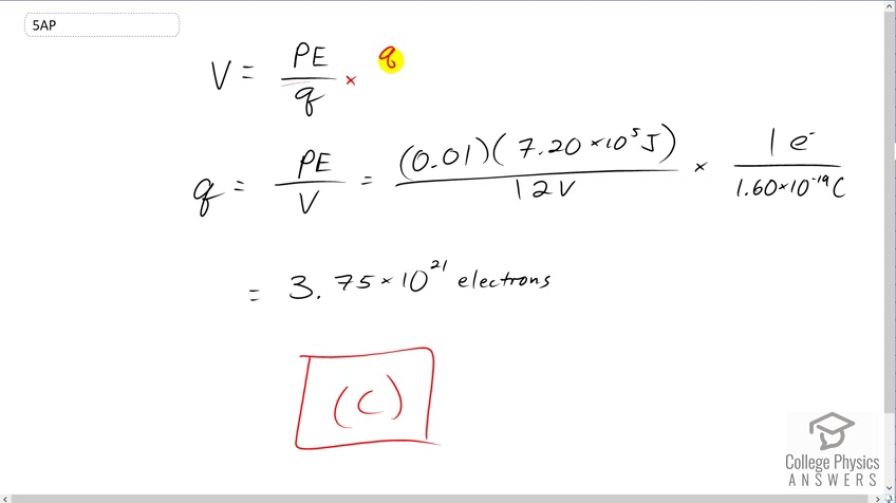 5AP
V = PE/q × q
q = PE/V = (0.01)(7.20×10⁵J)/12V × 1 e⁻/1.60×10⁻¹⁹C
= 3.75×10²¹ electrons
(C)
College Physics
ANSWERS